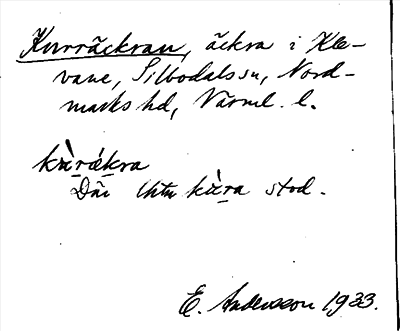 Kurräckran, äckra i Kle-
vane, Silbodals sn, Nord-
marks hd, Värml. l.
kùrǽkra
Där kùra stod.
E. Andersson 1933.